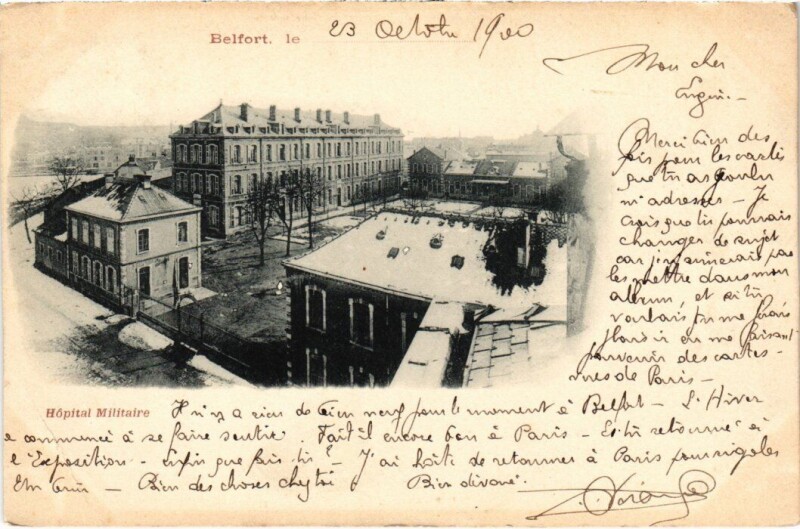 Belfort, le 23 Octobre 1900
Mon cher
Eugène -
Merci bien des
fois pour les cartes
que tu as voulu
m'adresser - Je
crois que tu pourrais
changer de sujet
car j'aimerais pas
les mettre dans mon
album, et si tu
voulais tu me ferais
plaisir en me faisant
parvenir des cartes-
vues de Paris -
Hôpital Militaire
Il n'y a rien de bien neuf pour le moment à Belfort - L'Hiver
commence à se faire sentir. Fait il encore bon à Paris - Es-tu retourné à
l'Exposition - Enfin que fais-tu? - J'ai hâte de retourner à Paris pour rigoler
- Bien des choses chez toi Bien dévoué